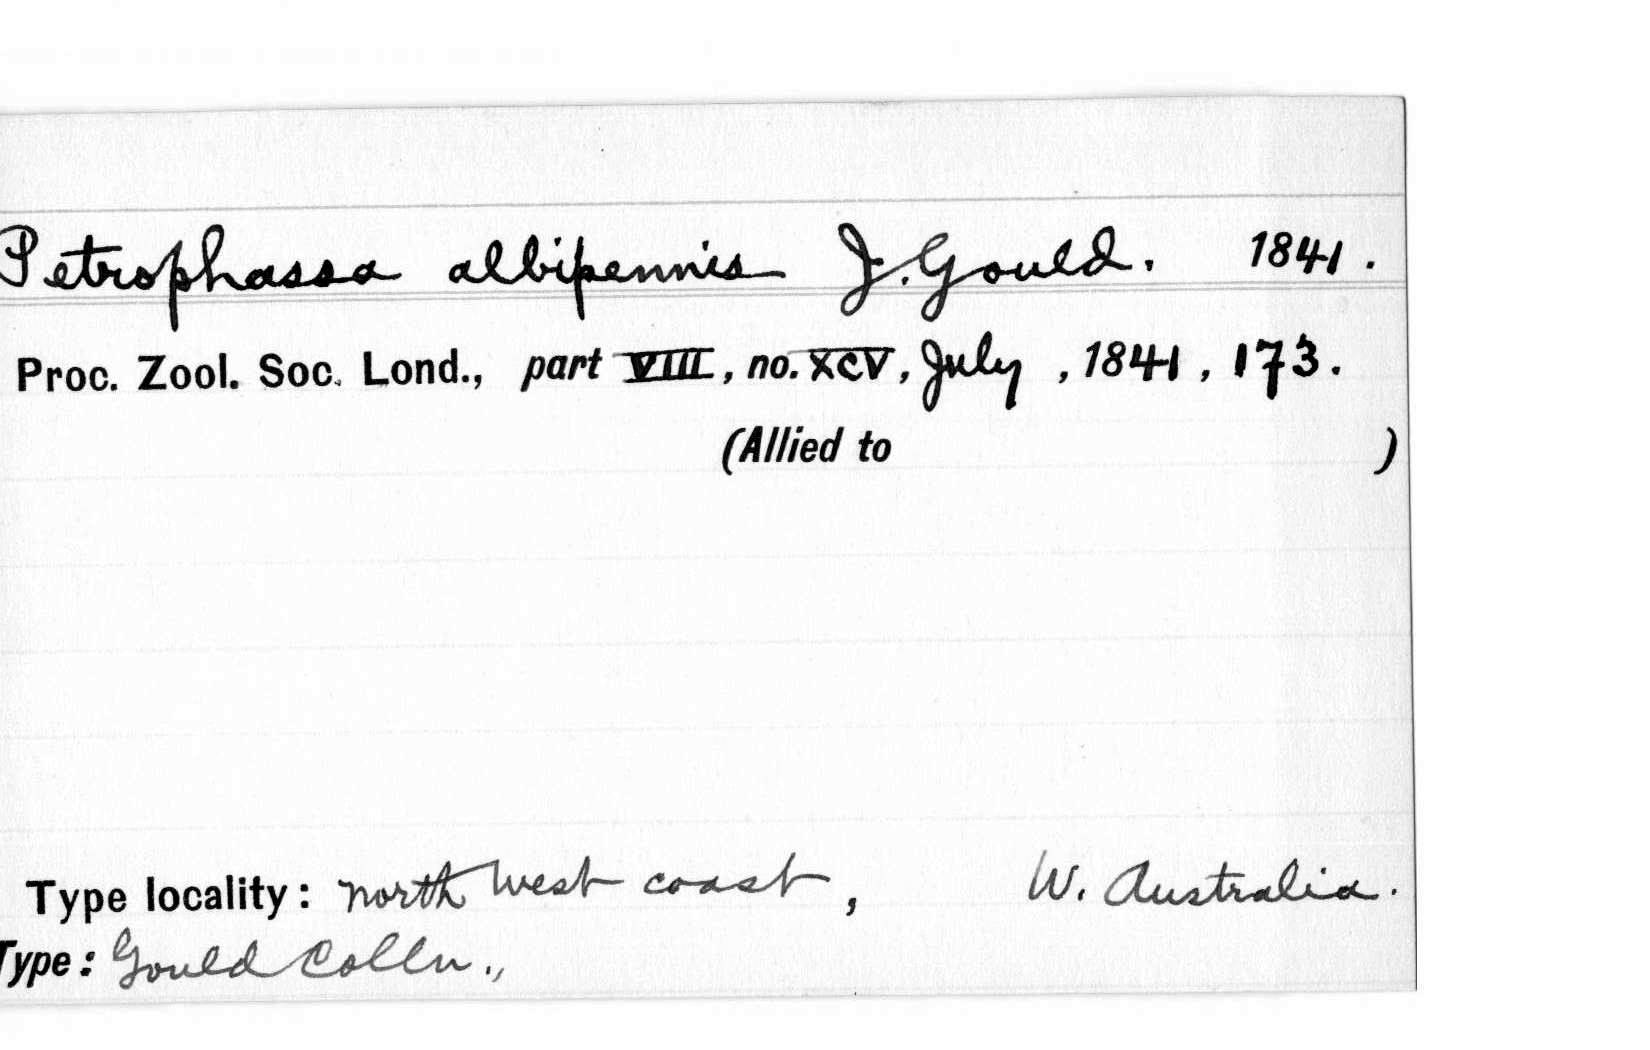 Petrophassa albipennis J. Gould. 1841.
Proc. Zool. Soc. Lond., part VIII, no. XCV, July, 1841, 173.
(Allied to )
Type locality: north west coast, W. Australia.
Type: Gould Colln.,